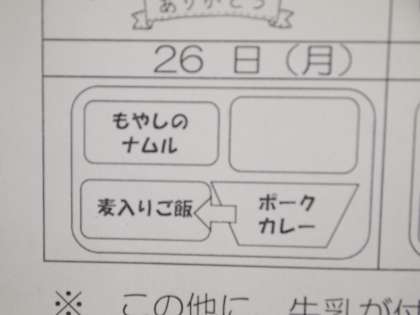 ありがとう
26 日（月）
もやしの
ナムル
麦入りご飯
ポーク
カレー
※ この他に、牛乳が付